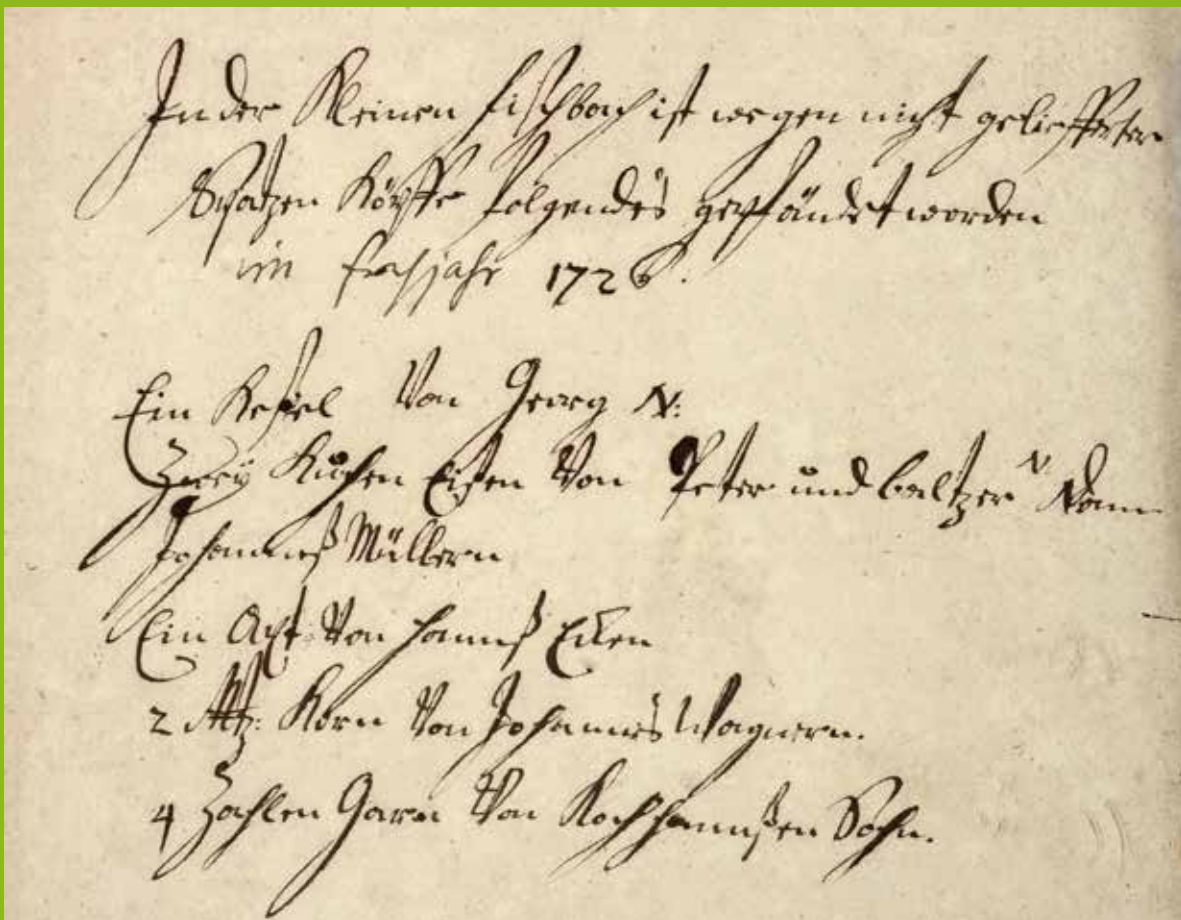 In der Kleinen Fischbach ist wegen nicht geliefferter
Spatzen Köpffe folgendes gepfändet worden
im Frühjahr 1726.
Ein Keßel Von Georg N:
Zwey Kuchen Eisen Von Peter und Baltzer
Johanneß Müllern
Ein Axt Von Hannß
2 Mtz: Korn Von Johannes Wagnern.
4 Zahlen Garn Von Koch Hannßen Sohn.